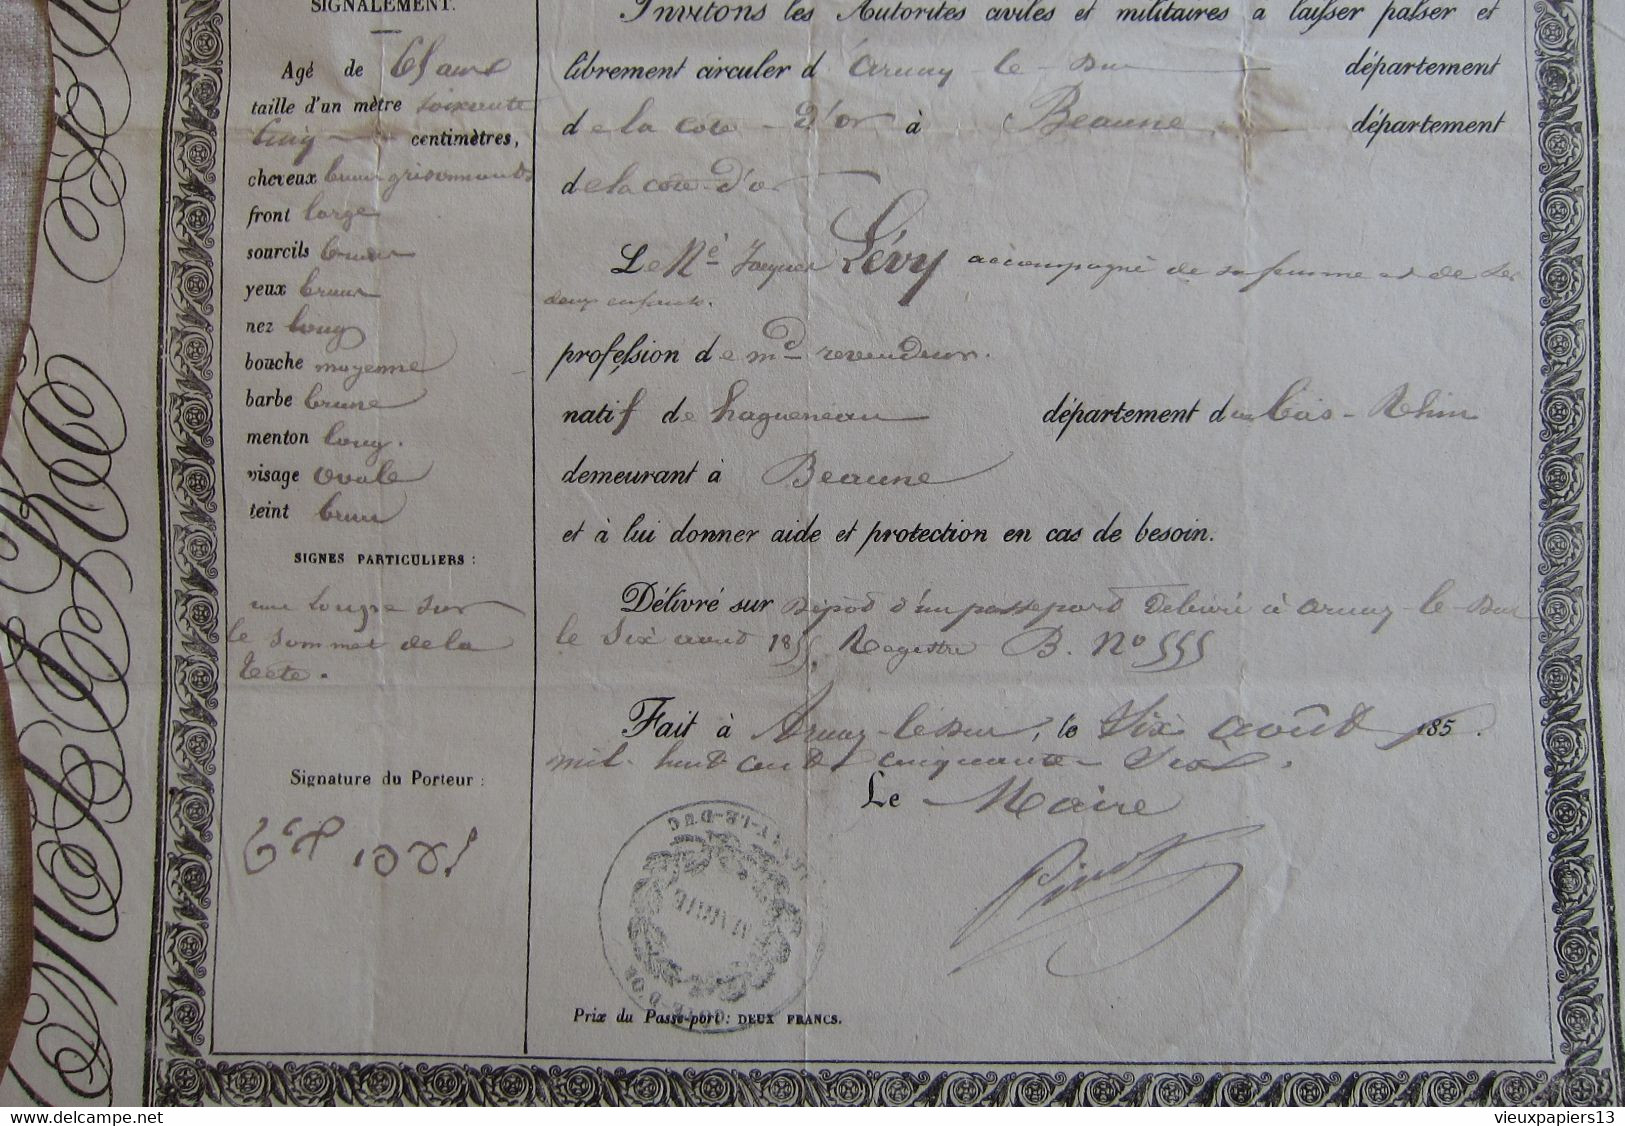 SIGNALEMENT.
Agé de 65 ans
taille d'un mètre soixante
cinq centimètres,
cheveux bruns grisonnants
front large
sourcils bruns
yeux bruns
nez long
bouche moyenne
barbe brune
menton long.
visage ovale
teint brun
SIGNES PARTICULIERS :
une loupe sur
le sommet de la
tête.
Signature du Porteur :
Invitons les Autorités civiles et militaires à laisser passer et
librement circuler d'Arnay-le-Duc département
de la Côte-d'or à Beaune, département
de la Côte-d'or
Le Né Jacques Lévy accompagné de sa femme et de ses
deux enfants.
profession de md revendeur.
natif de hagueneau département du bas-Rhin
demeurant à Beaune
et à lui donner aide et protection en cas de besoin.
Délivré sur Dépôt d'un passeport Délivré à Arnay-le-Duc
le Six août 1855, Registre B. No 555
Fait à Arnay-le-Duc, le Six août 185 .
mil huit cent cinquante-
Le Maire
ARNAY-LE-DUC
MAIRIE
CÔTE-D'OR
Prix du Passe-port : DEUX FRANCS.
delcampe.net
vieuxpapiers13